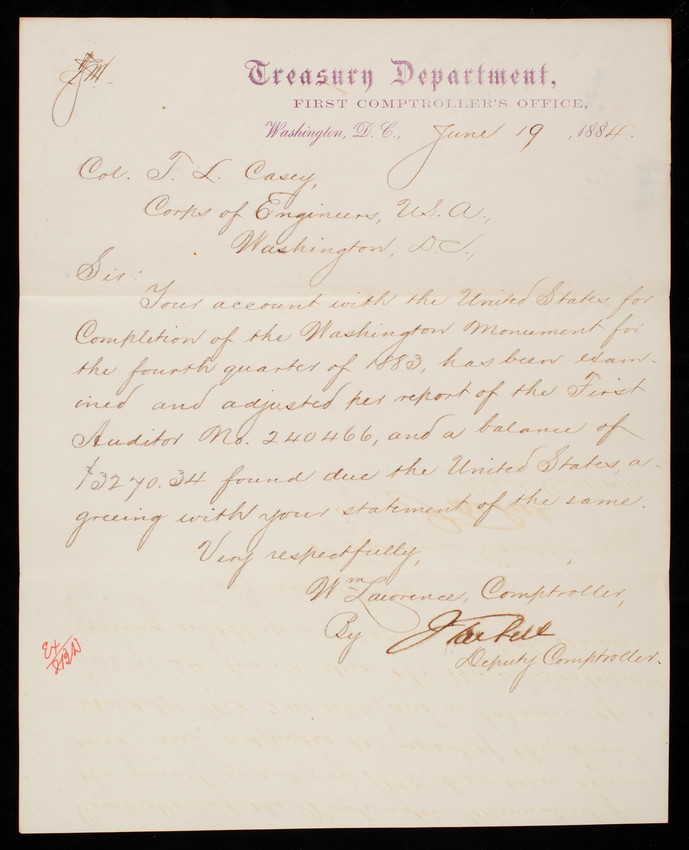 Treasury Department,
FIRST COMPTROLLER'S OFFICE,
Washington, D. C., June 19, 1884.
Col. T. L. Casey,
Corps of Engineers, U.S.A.,
Washington, D.C.,
Sir:
Your account with the United States for
Completion of the Washington Monument for
the fourth quarter of 1883, has been exam-
ined and adjusted per report of the First
Auditor No. 240466, and a balance of
$3270.34 found due the United States, a-
greeing with your statement of the same.
Very respectfully,
Wm Lawrence, Comptroller,
By J Tarbell
Deputy Comptroller.
Ex